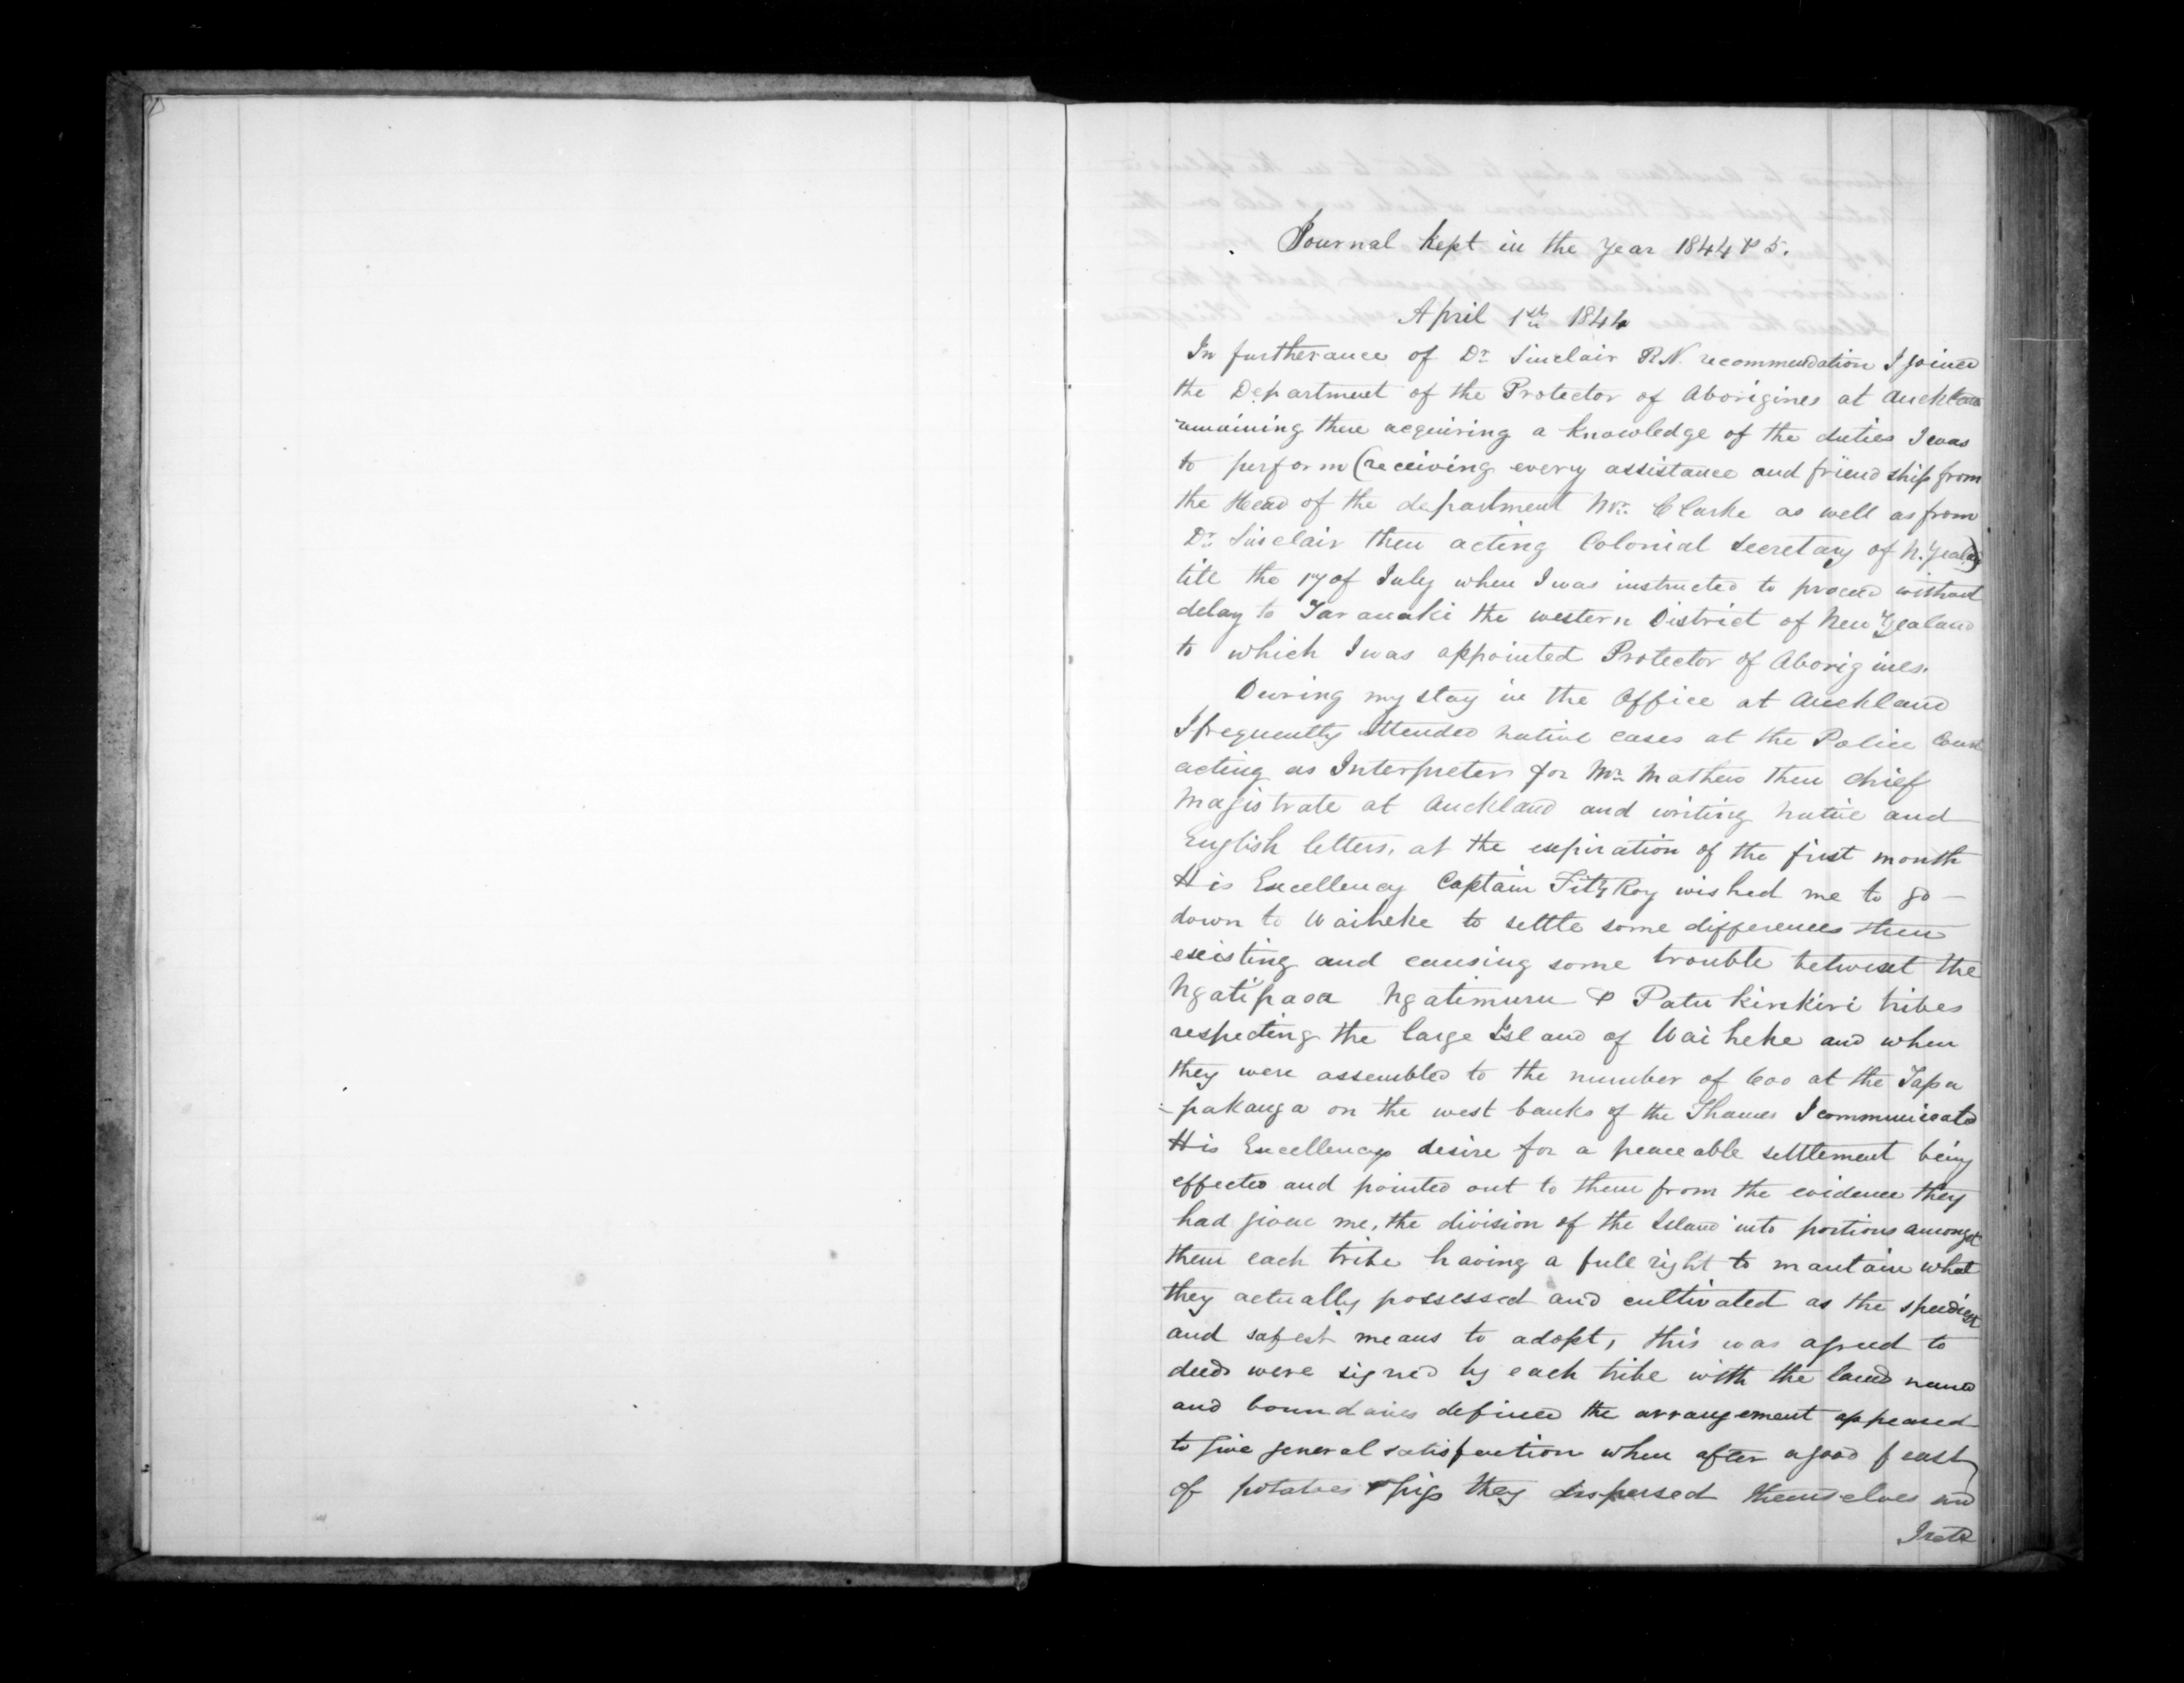 Journal kept in the Year 1844 & 5.
April 1st 1844
In furtherance of Dr. Sinclair R.N. recommendation I joined
the Department of the Protector of Aborigines at Auckland
remaining there acquiring a knowledge of the duties I was
to perform (receiving every assistance and friendship from
the Head of the department Mr. Clarke as well as from
Dr. Sinclair then acting Colonial Secretary of N. Zealand)
till the 17 of July when I was instructed to proceed without
delay to Taranaki the western District of New Zealand
to which I was appointed Protector of Aborigines.
During my stay in the Office at Auckland
I frequently attended native cases at the Police Court
acting as Interpreter for Mr. Mathew then chief
Magistrate at Auckland and writing native and
English letters, at the expiration of the first month
His Excellency Captain FitzRoy wished me to go —
down to Waiheke to settle some differences then
existing and causing some trouble betwixt the
Ngatipaoa Ngatimuru & Patukirikiri tribes
respecting the large Island of Waiheke and when
they were assembled to the number of 600 at the Tapa
=pakanga on the west banks of the Thames I communicated
His Excellencys desire for a peaceable settlement being
effected and pointed out to them from the evidence they
had given me, the division of the Island into portions amongst
them each tribe having a full right to mantain what
they actually possessed and cultivated as the speediest
and safest means to adopt, this was agreed to
deeds were signed by each tribe with the lands named
and boundaries defined the arrangement appeared
to give general satisfaction when after a good feast
of potatoes & pigs they dispersed themselves and